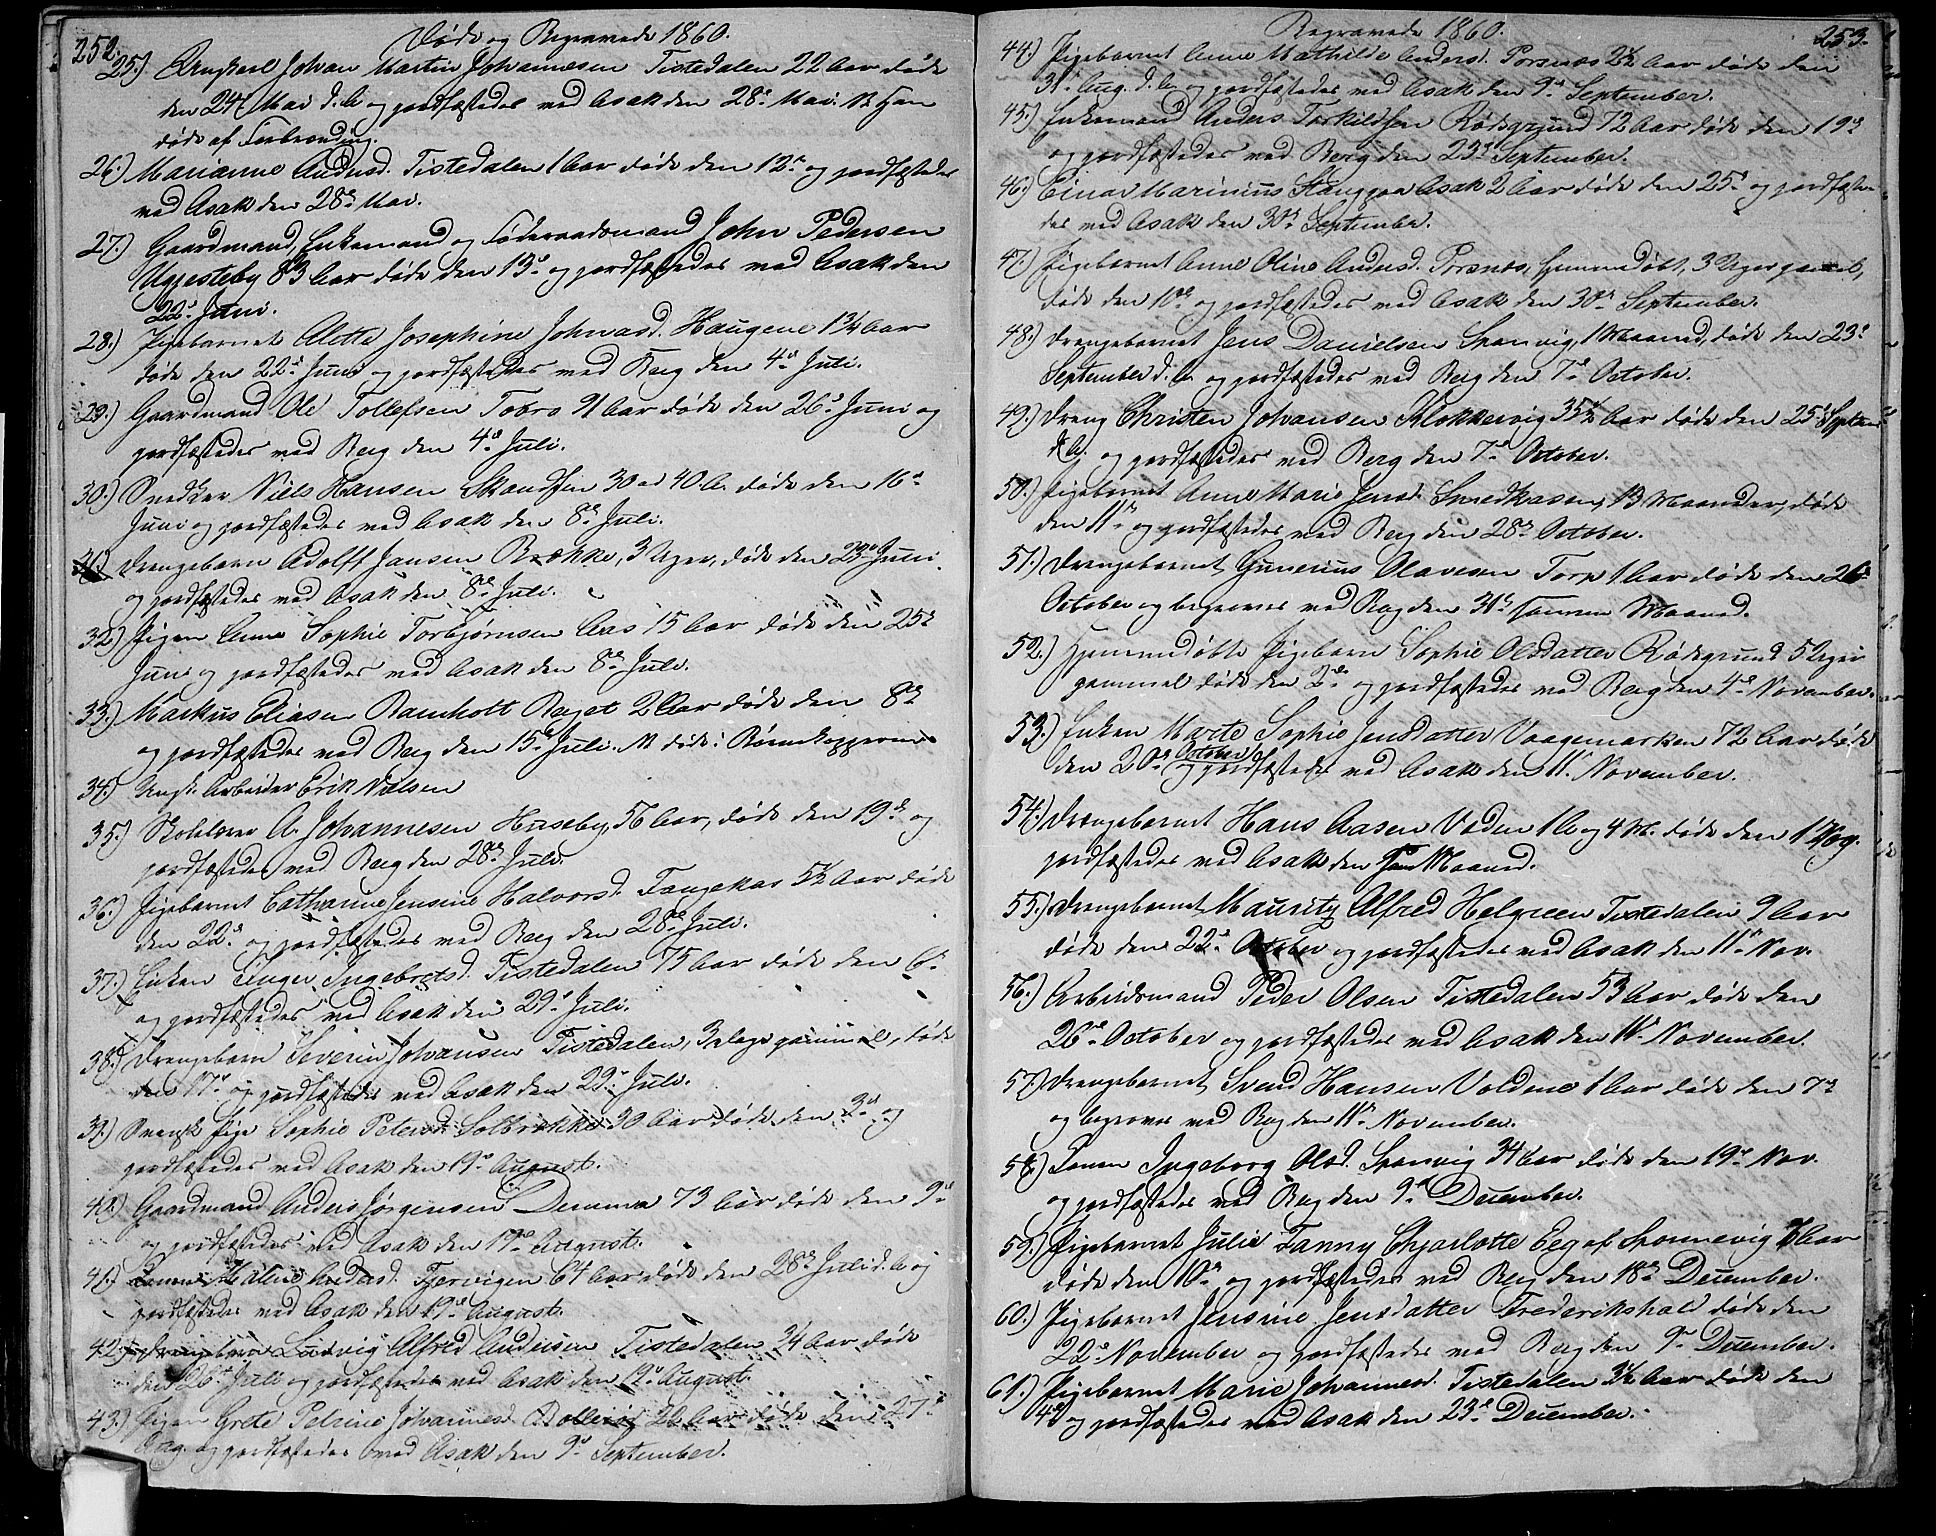 252.
Døde og Begravede 1860.
25.) Brugkarl Johan Martin Johannesen Tistedalen 22 Aar døde
den 24de Mai d. A. og jordfæstedes ved Asak den 28de Mai. NB Han
døde af Forbrænding.
26.) Marianne Andersd. Tistedalen 1 Aar døde den 12te og jordfæstedes
ved Asak den 28de Mai.
27.) Gaardmand, Enkemand og Føderaadsmand John Pedersen
Uggesteby 83 Aar døde den 13de og jordfæstedes ved Asak den
22de Juni.
28.) Pigebarnet Alette Josephine Johnasd. Haugene 1¾ Aar
døde den 22de Juni og jordfæstedes ved Berg den 4de Juli.
29.) Gaardmand Ole Tollefsen Tobro 91 Aar døde den 26de Juni og
jordfæstedes ved Berg den 4de Juli.
30.) Snedker Niels Hansen 30 a 40 A. døde den 16de
Juni og jordfæstedes ved Asak den 8de Juli.
31.) Drengebarn Adolff Jansen Brække, 3 Uger, døde den 23de Juni
og jordfæstedes ved Asak den 8de Juli.
32.) Pigen Anne Sophie Torbjørnsen Aas 15 Aar døde den 25de
Juni og jordfæstedes ved Asak den 8de Juli.
33.) Markus Eliasen Ramholt 2 Aar døde den 8de
og jordfæstedes ved Berg den 15de Juli. NB døde i Børnekopperne
34.) Ungk: Arbeider Erik Nielsen
35.) Skolelærer A. Johannesen Huseby, 56 Aar, døde den 19de og
jordfæstedes ved Berg den 28de Juli.
36.) Pigebarnet Cathrine Jensine Halvorsd. 5½ Aar døde
den 22de og jordfæstedes ved Berg den 28de Juli.
37.) Enken Inger Ingebretsd. Tistedalen 75 Aar døde den 6te
og jordfæstedes ved Asak den 29de Juli.
38.) Drengebarn Severin Johansen Tistedalen, 3 Dage gammel, døde
den 17de og jordfæstedes ved Asak den 29de Juli.
39.) Svensk Pige Sophie Petersd. Solbrække 30 Aar døde den 3de og
jordfæstedes ved Asak den 19de August.
40.) Gaardmand Anders Jørgensen Lemma 73 Aar døde den 9de
og jordfæstedes ved Asak den 19de August.
41.) Konen Malene Andersd. 64 Aar døde den 28de Juli d. A. og
jordfæstedes ved Asak den 19de August.
42.) Drengebarn Ludvig Alfred Andersen Tistedalen ¾ Aar døde
den 26de Juli og jordfæstedes ved Asak den 19de August.
43.) Pigen Grete Petrine Johannesd. 22 Aar døde den 27de
Aug. og jordfæstedes ved Asak den 9de September.
Begravede 1860.
253.
44.) Pigebarnet Anne Mathilde Andersd. Porsnæs 2½ Aar døde den
31te Aug. d. A. og jordfæstedes ved Asak den 9de September.
45.) Enkemand Anders Torkildsen Rødsgrund 72 Aar døde den 19de
og jordfæstedes ved Berg den 23de September.
46.) Einar Marinius Stanggaa Asak 2 Aar døde den 25de og jordfæste-
des ved Asak den 30te September.
47.) Pigebarnet Anne Oline Andersd. Porsnæs, hjemmedøbt, 3 Uger gammel,
døde den 10de og jordfæstedes ved Asak den 30te September.
48.) Drengebarnet Jens Danielsen Sponvig, 1 Maaned, døde den 23de
September d. A. og jordfæstedes ved Berg den 7de October.
49.) Dreng Christen Johansen Klokkervig 35½ Aar døde den 25de Septem
d. A. og jordfæstedes ved Berg den 7de October.
50.) Pigebarnet Anne Marie Jensd. 13 Maaneder, døde
den 11te og jordfæstedes ved Berg den 28de October.
51.) Drengebarnet Gunerius Olavesen Torp 1 Aar døde den 26de
October og begraves ved Berg den 31te samme Maaned.
52.) Hjemmedøbte Pigebarn Sophie Olsdatter Rødsgrund 5 Uger
gammel døde den 2de og jordfæstedes ved Berg den 4de November.
53.) Enken Marte Sophie Jensdatter Vaagemarken 72 Aar døde
den 20de October og jordfæstedes ved Asak den 11te November.
54.) Drengebarnet Hans Aasen Veden 1 A. og 4 M. døde den 1 Nov.
jordfæstedes ved Asak den Maaned.
55.) Drengebarnet Mauritz Alfred Helgreen Tistedalen 9 Aar
døde den 22de October og jordfæstedes ved Asak den 11te Nov.
56.) Arbeidsmand Peder Olsen Tistedalen 53 Aar døde den
26de October og jordfæstedes ved Asak den 11te November.
57.) Drengebarnet Svend Hansen Voldene 1 Aar døde den 7de
og begraves ved Berg den 11te November.
58.) Konen Ingeborg Olsd. Sponvig 34 Aar døde den 19de Nov.
og jordfæstedes ved Berg den 9de December.
59.) Pigebarnet Julie Fanny Chjarlotte Eeg af Sponnevig Aar
døde den 10de og jordfæstedes ved Berg den 18de December.
60.) Pigebarnet Jensine Jensdatter Frederikshald døde den
22de November og jordfæstedes ved Berg den 9de December.
61.) Pigebarnet Marie Johannesd. Tistedalen 3½ Aar døde den
4de og jordfæstedes ved Asak den 23de December.